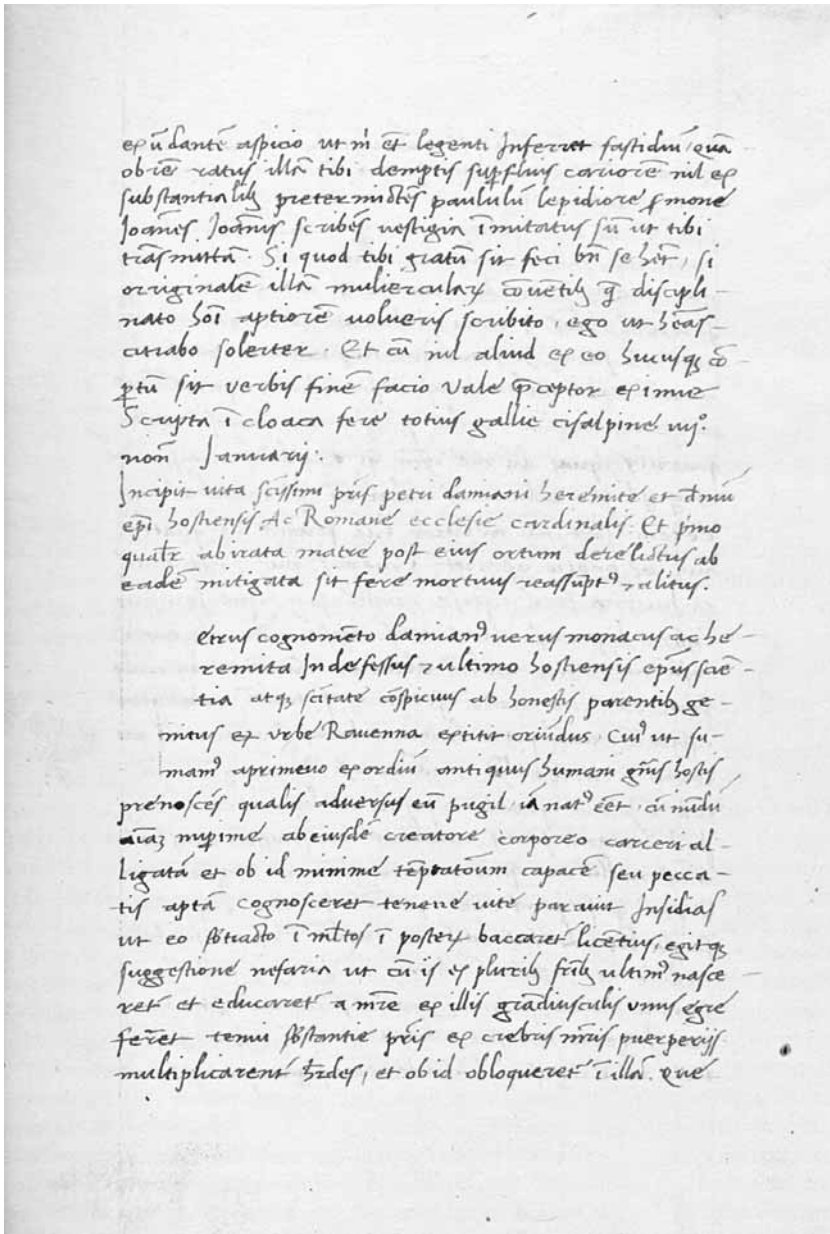 exūdantē aspicio ut m̄ ēt legenti Inferret fastidiū, quā
obrē ratus illā tibi demptis sup̄fluis cariorē nil ex
substantialib; pretermictēs paululū lepidiore ꝑmone
Ioānes Ioānis scribēs vestigia īmitatus sū ut tibi
trāsmittā. Si quod tibi gratū sit feci bn̄ se het̄, si
orriginalē illā muliercularꝝ cōventib; q̄ discipli-
nato hoī aptiorē volueris scribito, ego ut heās
curabo solerter. Et cū nil aliud ex eo hucusq; cō-
ꝑtū sit verbis finē facio Vale p̄ceptor eximie
Scripta ī cloaca fere totius gallie cisalpine iiij°.
non̄ Ianuarij:.
Incipit vita sc̄issimi pr̄is petri damiani heremite et d̄mū
ep̄i hostiensis, Ac Romane ecclesie cardinalis. Et p̄mo
qualr̄ abirata matre post eius ortum derelictus ab
eadē mitigata sit fere mortuus reassūptꝰ ⁊ alitus.
etrus cognomēto damianꝰ verus monacus ac he-
remita Indefessus ⁊ ultimo hostiensis ep̄us sciē-
tia atq; sc̄itate cōspicuus ab honestis parentib; ge-
nitus ex urbe Ravenna extitit oriūdus. Cuiꝰ ut su-
mamꝰ aprimevo exordiū antiquus humani gn̄is hostis
prenoscēs qualis adversus eū pugil iā natꝰ eēt, cū mūdū
aīaꝫ nuꝑrime ab eiusdē creatore corporeo carceri al-
ligatā et ob id minime tēptatōnum capacē seu pecca-
tis aptā cognosceret tenere vite paravit Insidias
ut eo sb̄tracto ī ml̄tos ī posterꝝ baccaret̄ licētius, egitq;
suggestione nefaria ut cū is ex plurib; fr̄ib; ultimꝰ nasce
ret̄ et educaret̄ a mr̄e ex illis grādiusculis unus egre
ferret tenui sb̄stantie pr̄is ex crebris mr̄is puerperijs
multiplicarent̄ hr̄des, et ob id obloqueret̄ ī illā. Que